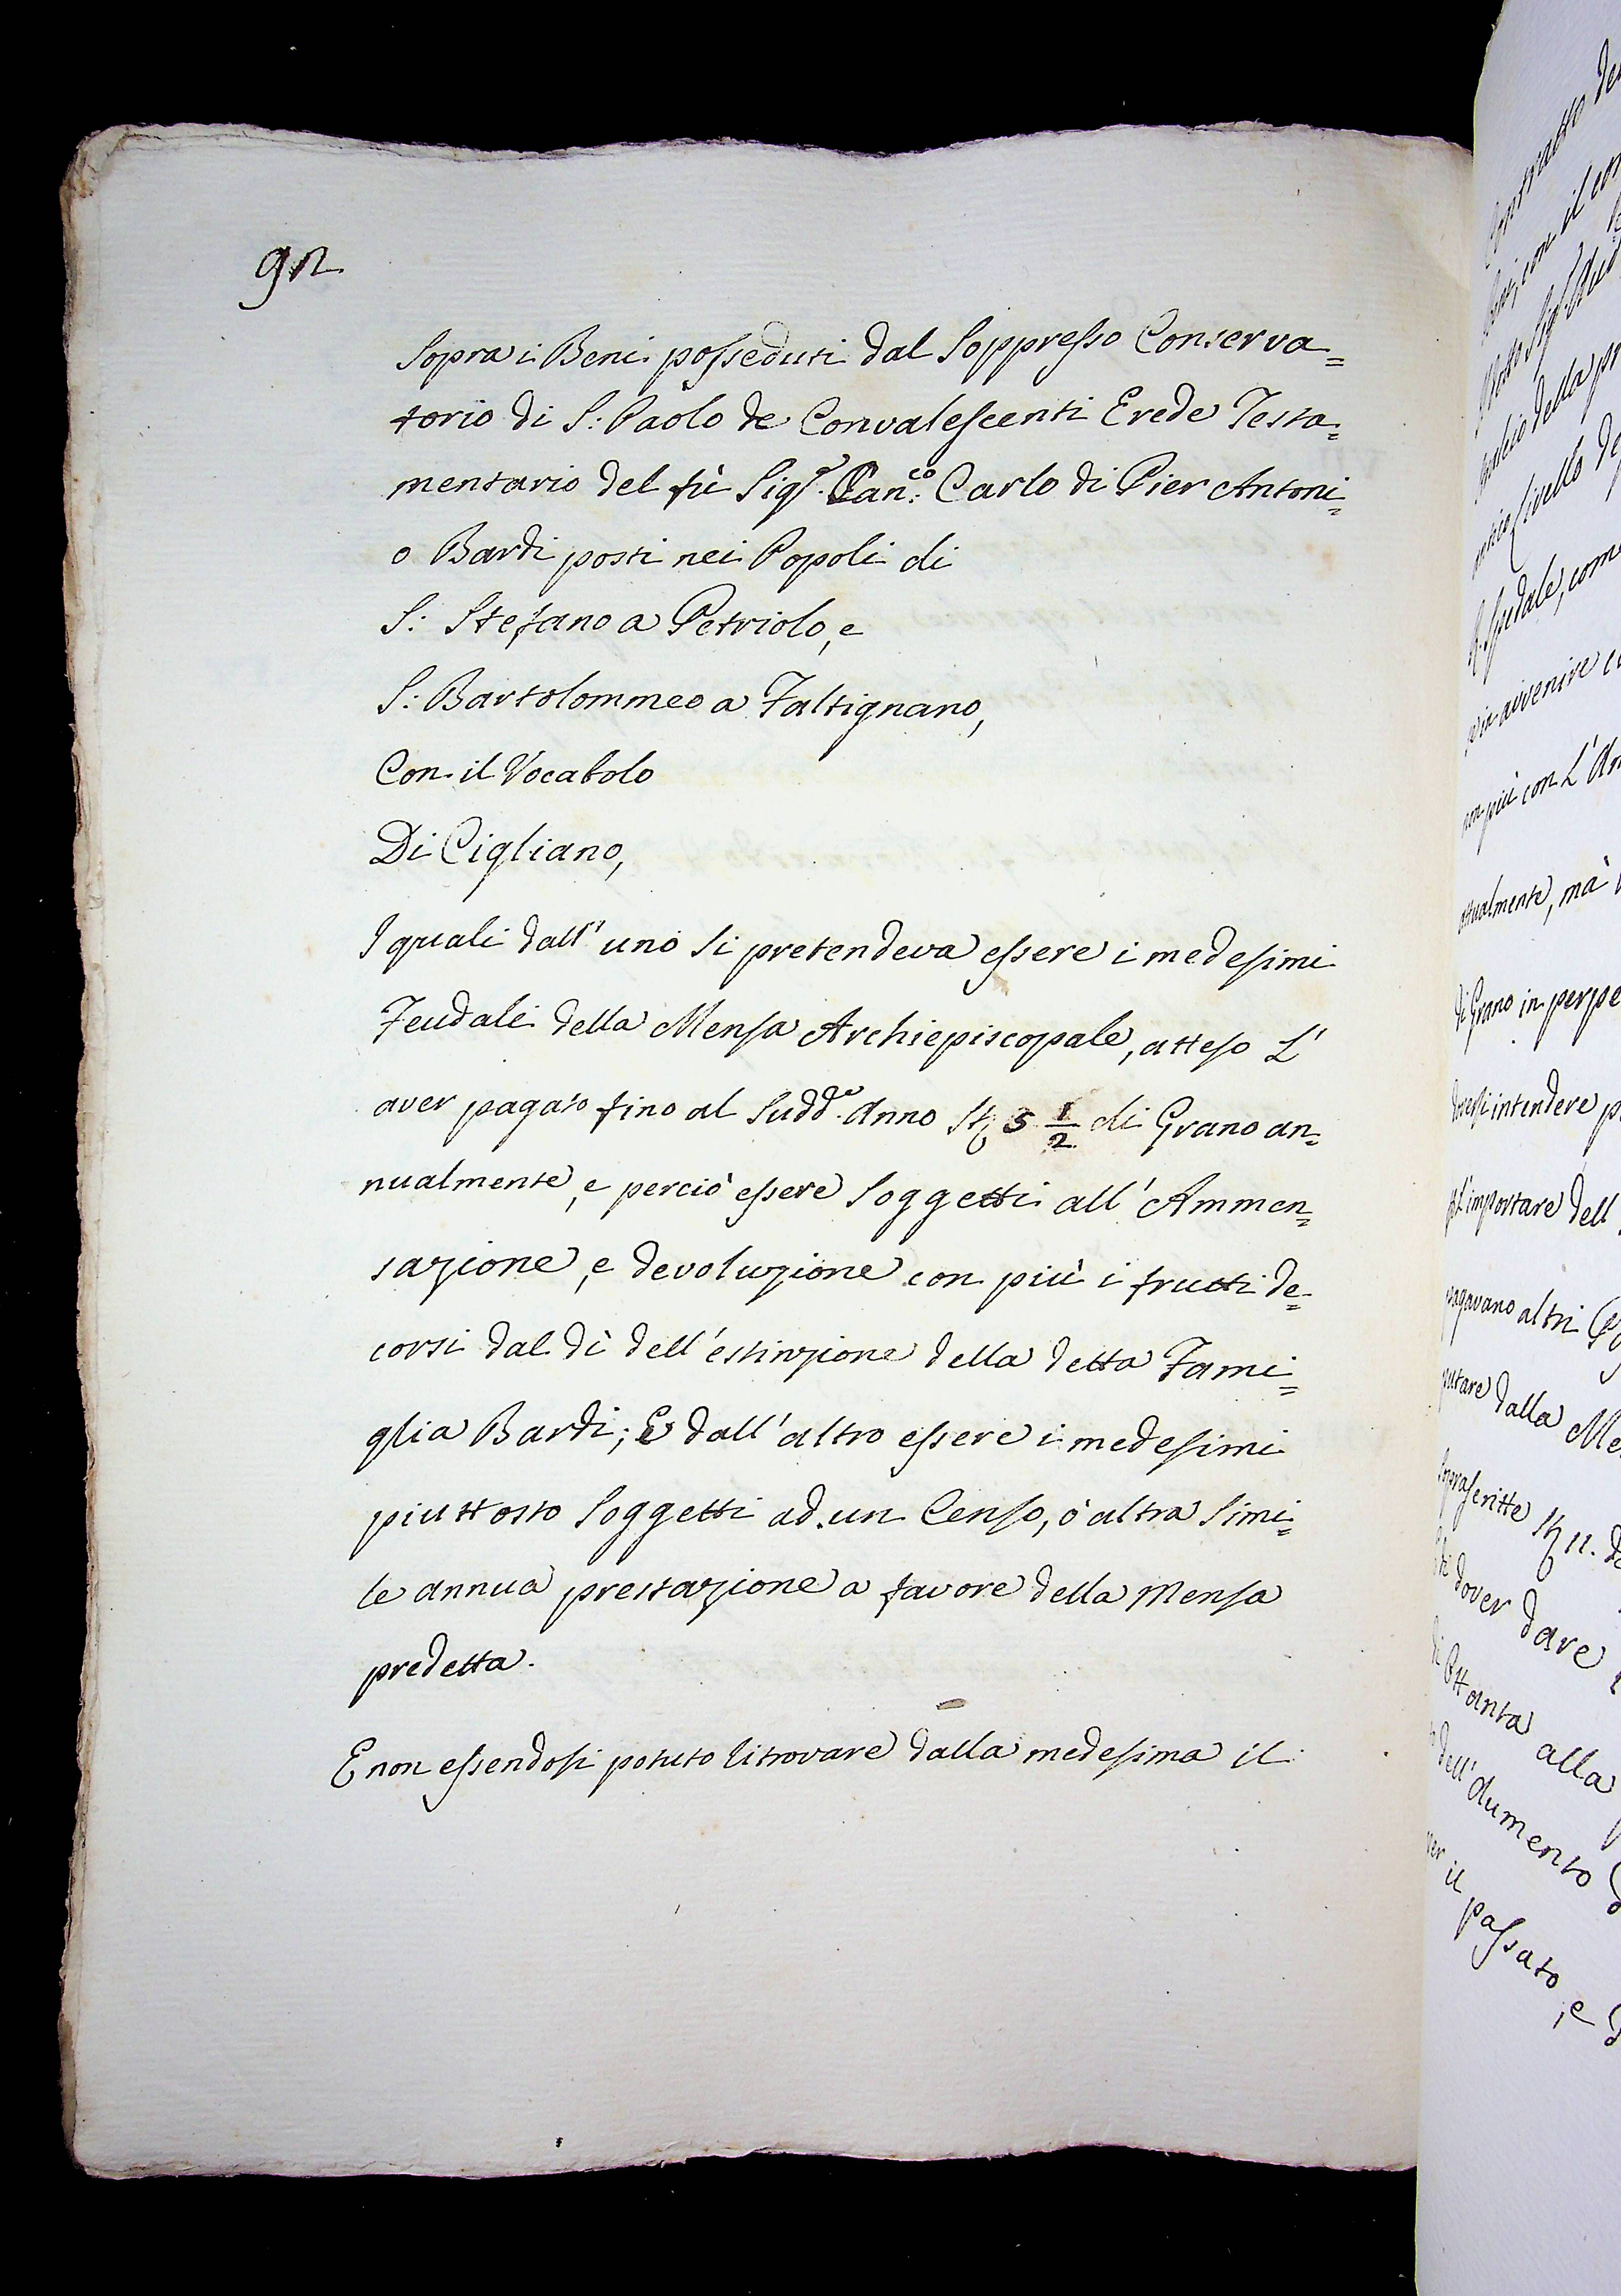 92
Sopra i Beni posseduti dal Soppresso Conserva=
torio di S: Paolo de Convalescenti Erede Testa=
mentario del fù Sigr. Canco: Carlo di Pier Antoni=
o Bardi posti nei Popoli di
S: Stefano a Petriolo, e
S: Bartolommeo a Faltignano,
Con il Vocabolo
Di Cigliano,
I quali dall'uno si pretendeva essere i medesimi
Feudali della Mensa Archiepiscopale, atteso L'
aver pagato fino al Sudd.o Anno St 5 1/2 di Grano an=
nualmente, e perciò essere Soggetti all'Ammen=
sazione, e devoluzione con più i frutti de=
corsi dal dì dell'estinzione della detta Fami=
glia Bardi; E dall'altro essere i medesimi
piuttosto Soggetti ad un Censo, ò altra Simi=
le annua prestazione a favore della Mensa
predetta.
E non essendosi potuto litrovare dalla medesima il
contratto
con il
della
livello
Spedale, come
avvenire
non più con L'
attualmente, mà
di Grano in
intendere
L'importare dell
pagavano altri
dalla
St 11.
dover dare
Ottanta alla
dell'Aumento
il passato, e